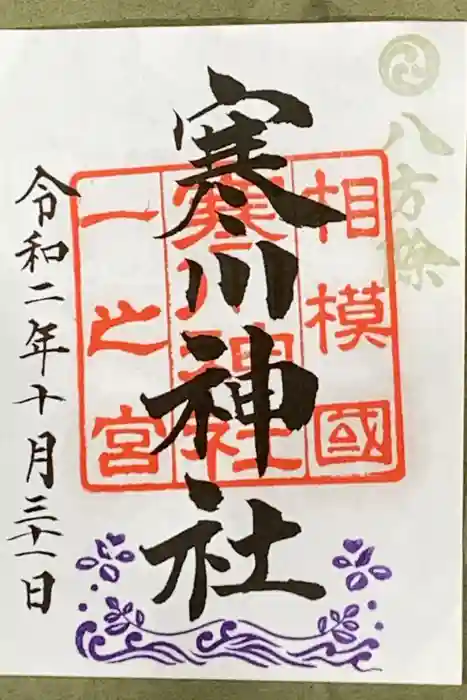 八方除
相模國
寒川神社
一之宮
寒川神社
令和二年十月三十一日